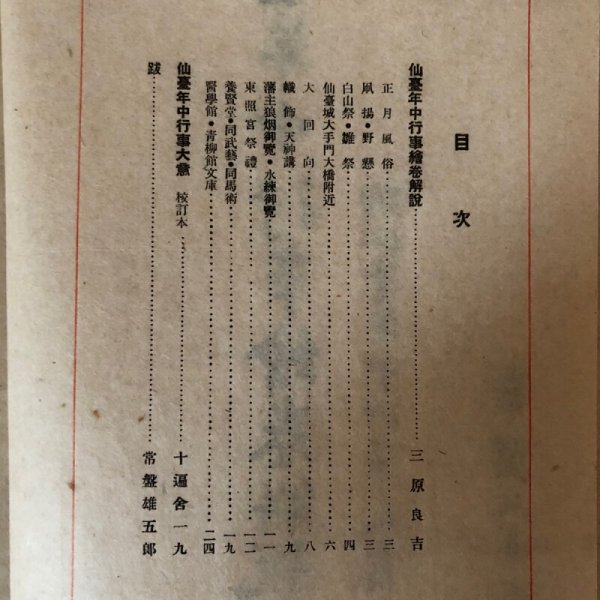 目次
仙臺年中行事繪卷解說……三原良吉
正月風俗……三
凧揚•野懸……三
白山祭•雛祭……四
仙臺城大手門大橋附近……六
大回向……八
幟飾•天神講……九
藩主狼烟御覽•水練御覽……一一
東照宮祭禮……一二
養賢堂•同武藝•同馬術……一九
醫學館•靑柳館文庫……二四
仙臺年中行事大意 校訂本……十返舍一九
跋……常盤雄五郎